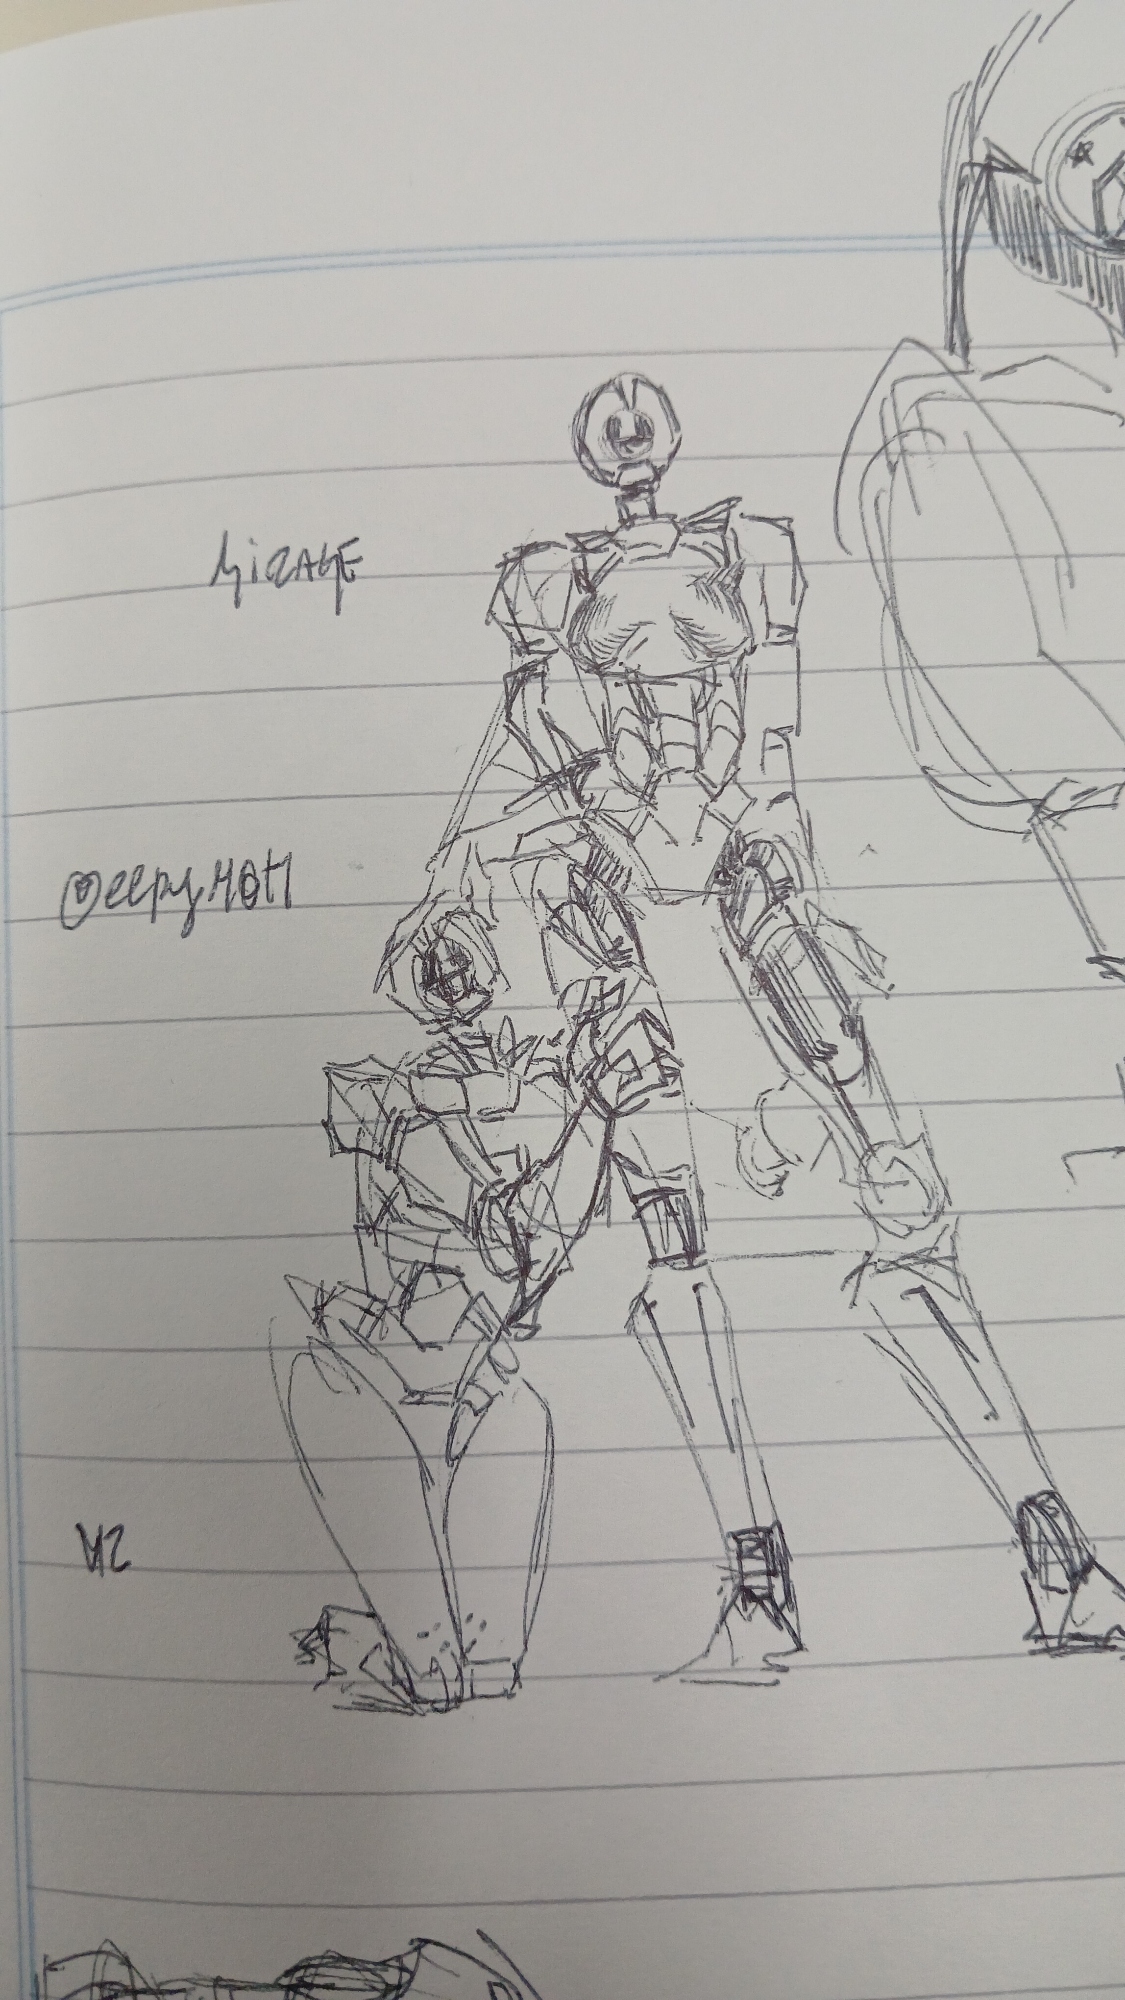 MiRAGE
@eepyMOTH
V2